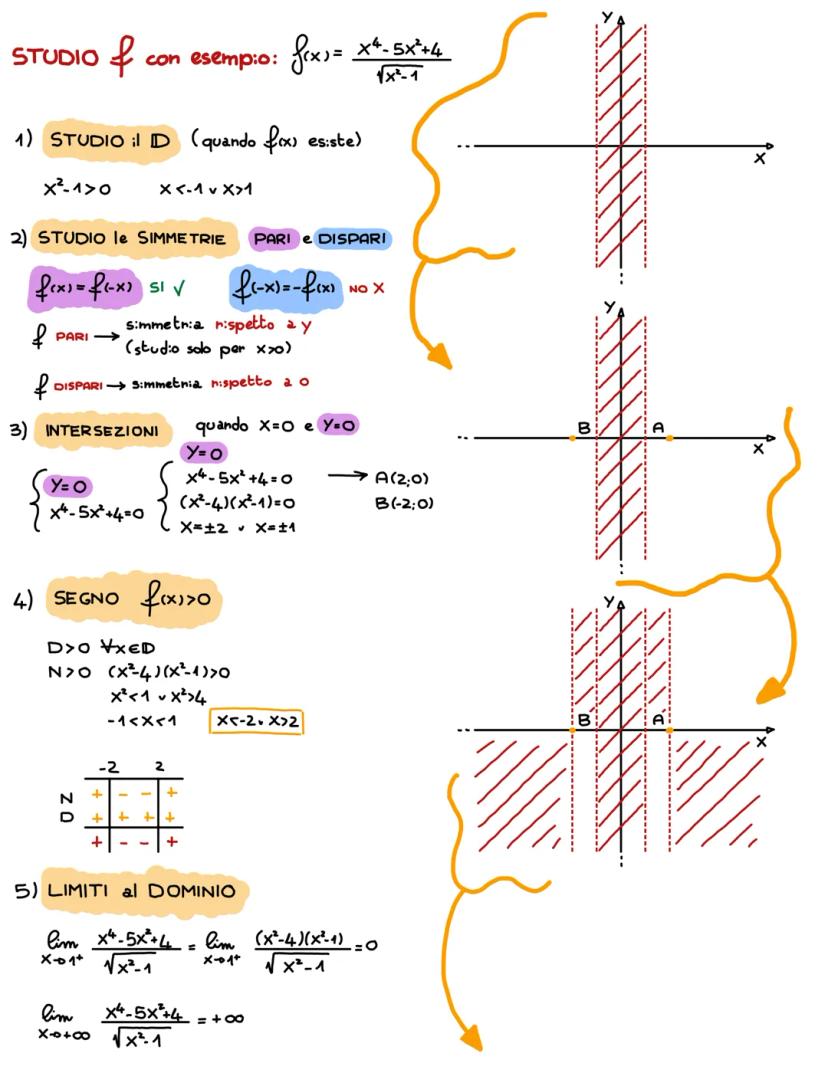 STUDIO f con esempio: f(x) = x⁴-5x²+4 / √x²-1
1) STUDIO il D (quando f(x) esiste)
x²-1>0 x<-1 ∨ x>1
2) STUDIO le SIMMETRIE PARI e DISPARI
f(x)=f(-x) SI √ f(-x)=-f(x) NO X
f PARI → simmetria rispetto a y
(studio solo per x>0)
f DISPARI → simmetria rispetto a 0
3) INTERSEZIONI quando X=0 e Y=0
Y=0
{ Y=0 { x⁴-5x²+4=0 → A(2;0)
x⁴-5x²+4=0 (x²-4)(x²-1)=0 B(-2;0)
X=±2 ∨ X=±1
4) SEGNO f(x)>0
D>0 ∀x∈D
N>0 (x²-4)(x²-1)>0
x²<1 ∨ x²>4
-1<x<1 x<-2 ∨ x>2
-2 2
N + - - +
D + + + +
+ - - +
5) LIMITI al DOMINIO
lim x→1⁺ x⁴-5x²+4 / √x²-1 = lim x→1⁺ (x²-4)(x²-1) / √x²-1 = 0
lim x→+∞ x⁴-5x²+4 / √x²-1 = +∞
Y
X
Y
B A
X
Y
B A
X